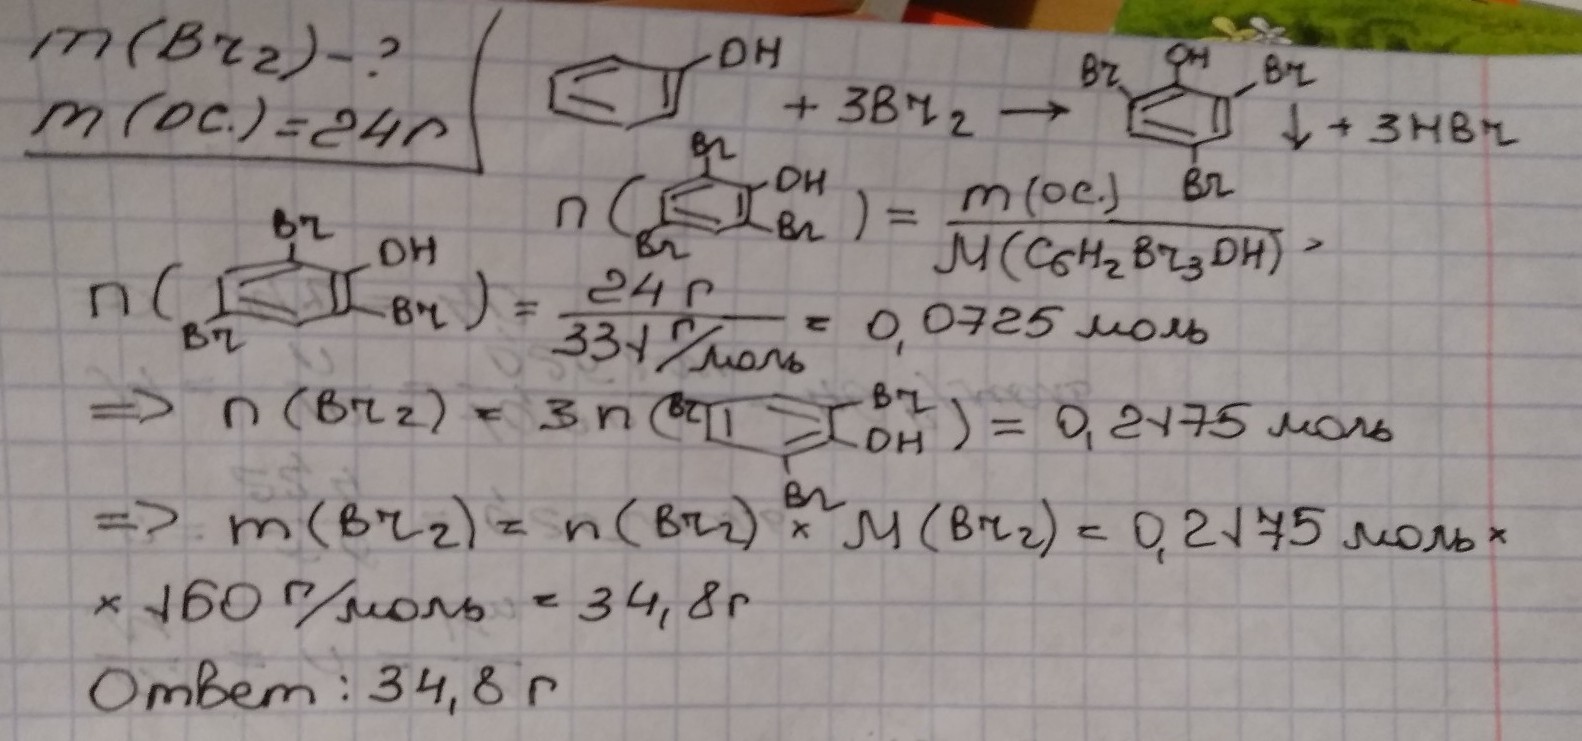 m(Br₂)-?
m(ос.)=24г
OH + 3Br₂ → Br OH Br Br ↓ + 3HBr
n( Br OH Br Br ) = m(ос.) / M(C₆H₂Br₃OH) >
n( Br OH Br Br ) = 24 г / 331 г/моль = 0,0725 моль
=> n(Br₂) = 3n( Br Br OH Br ) = 0,2175 моль
=> m(Br₂) = n(Br₂) × M(Br₂) = 0,2175 моль ×
× 160 г/моль = 34,8г
Ответ: 34,8 г